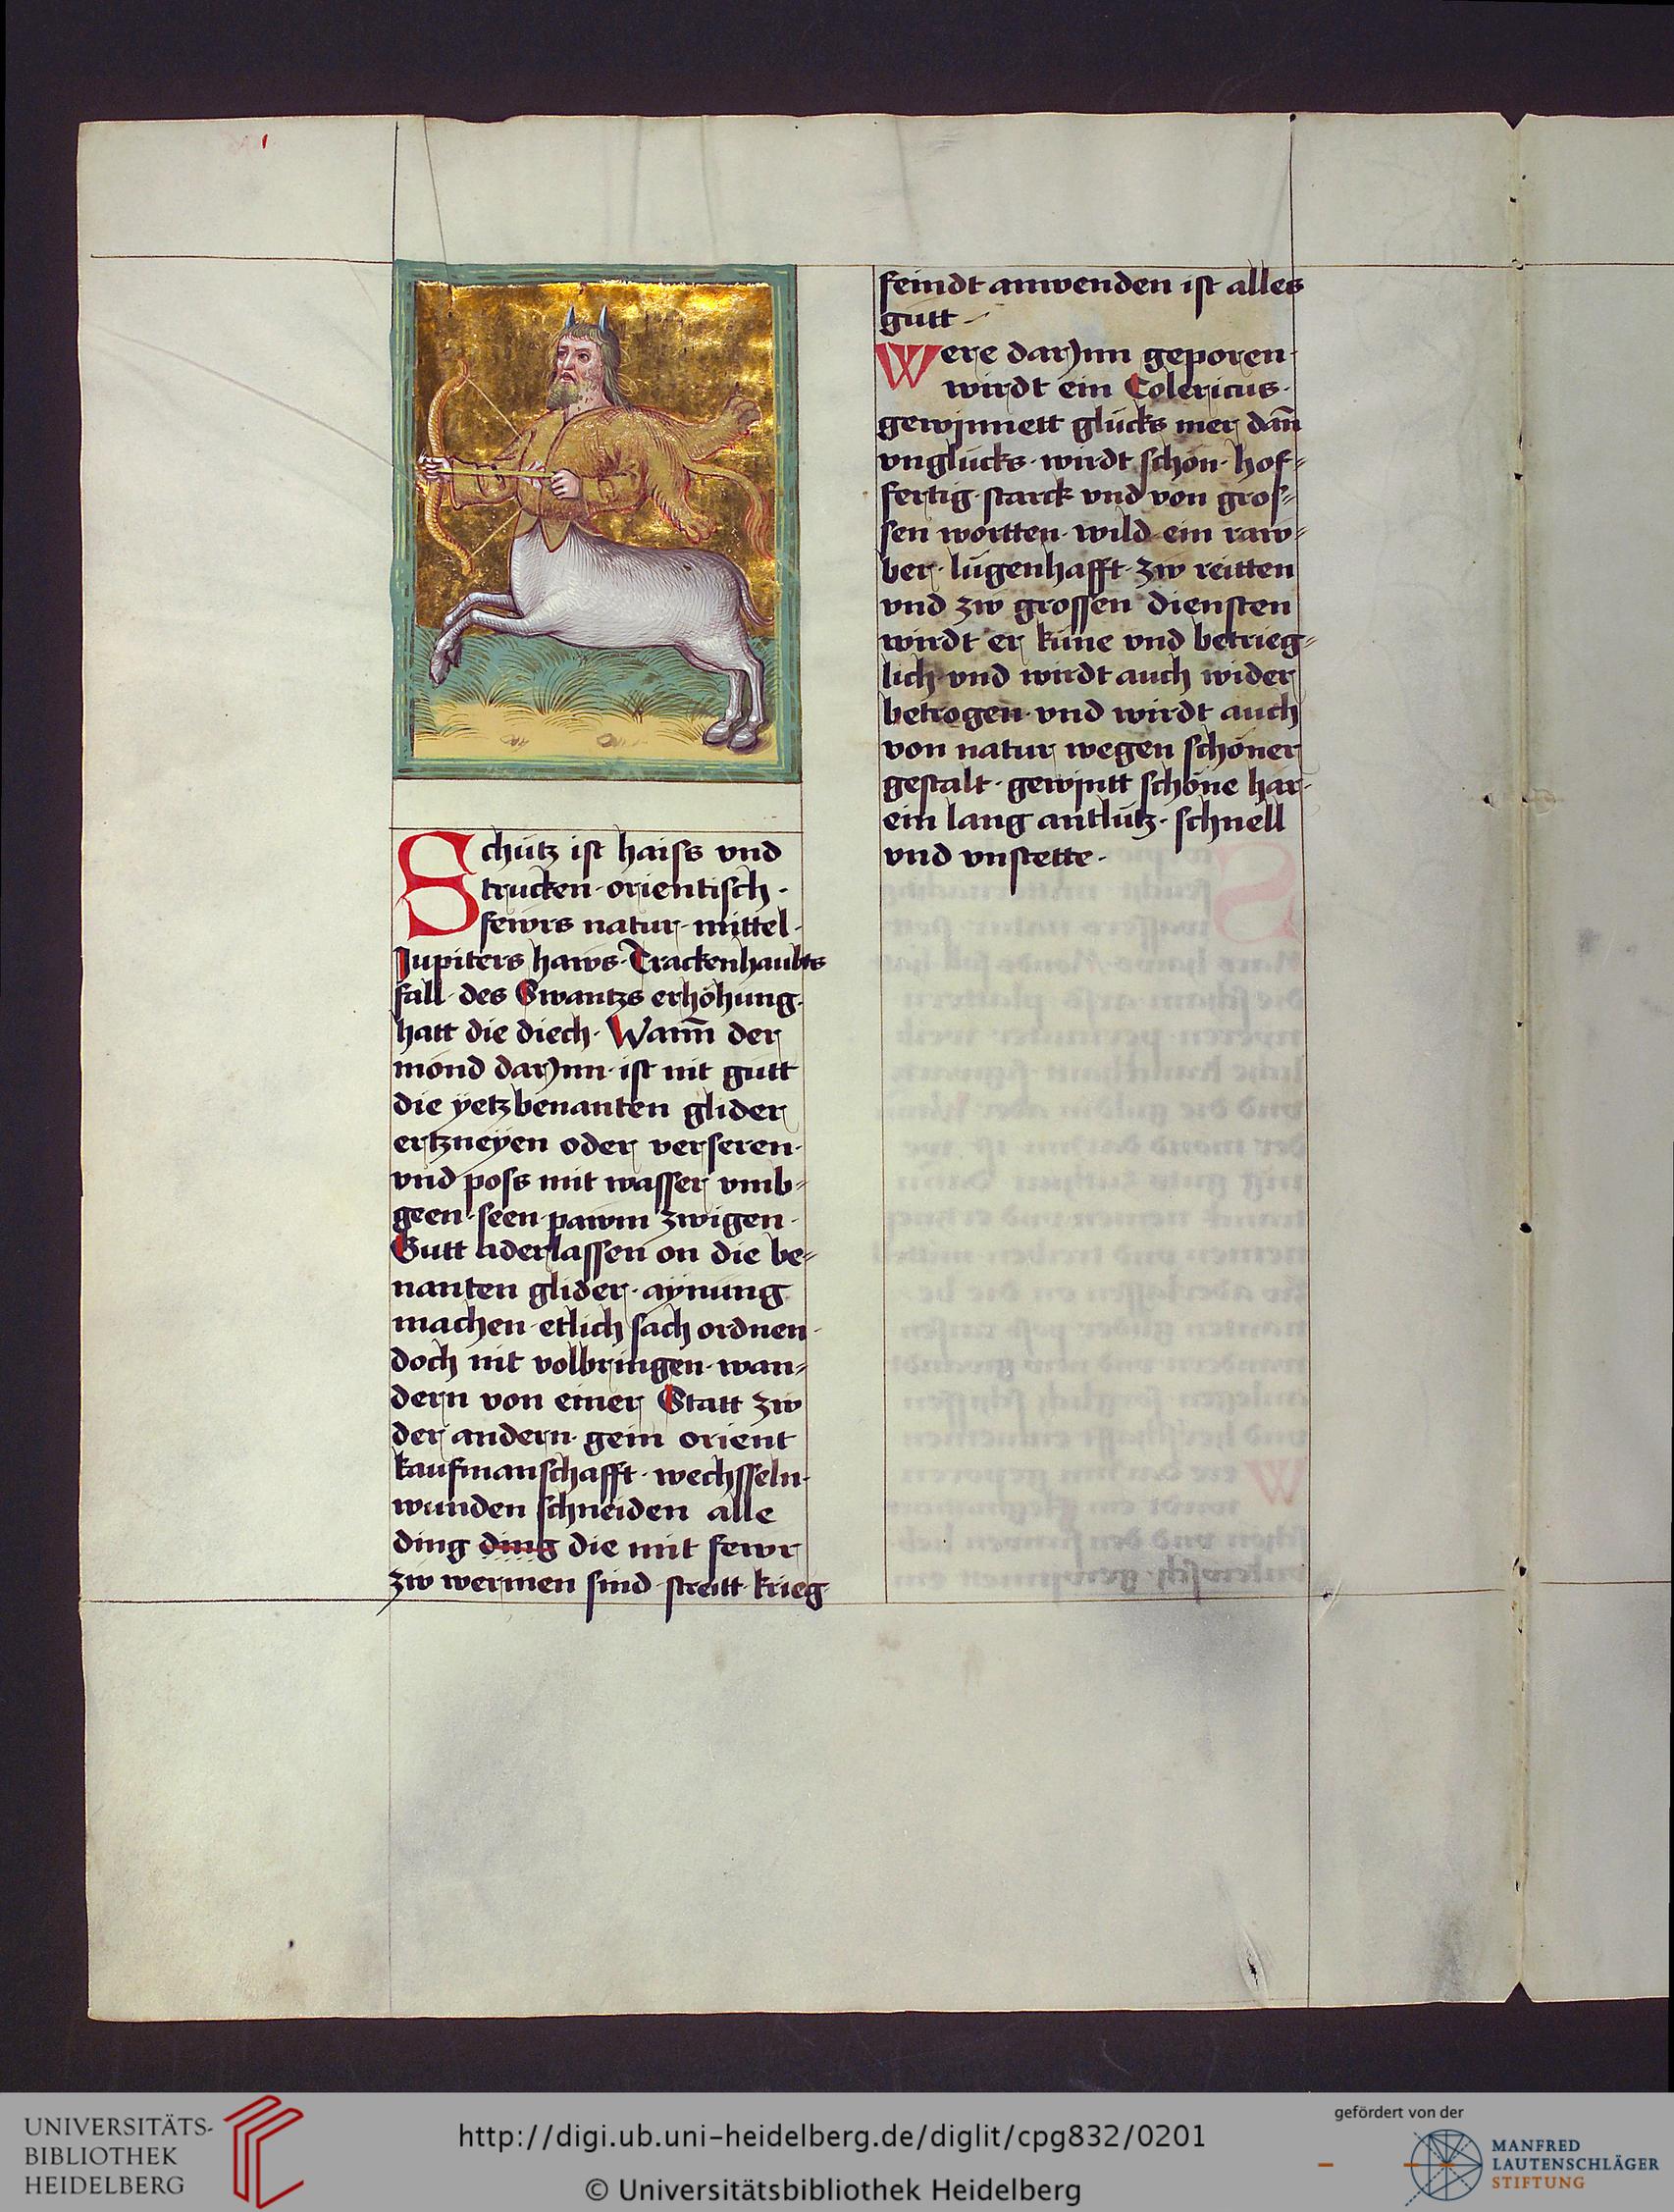 Schütz ist haiss vnd
trucken · orientisch ·
fewrs natur · mittel ·
Jupiters haws · Trackenhaubts
fall · des Swantzs erhöhung ·
hatt die diech · Wann̄ der
mond darynn · ist nit gutt
die ÿetzbenanten glider
ertzneÿen oder verseren ·
vnd poss mit wasser vmb-
geen · seen · pawm zwigen ·
Gutt aderlassen on die be-
nanten glider · aÿnung
machen · etlich sach ordnen ·
doch nit volbringen · wan-
dern von einer Statt zw
der andern · gein orient
kaufmanschafft · wechsseln ·
wunden schneiden alle
ding ding die mit fewr
zw wermen sind · streitt · krieg
feindt anwenden ist alles
gutt ·
Were darynn geporen ·
wirdt ein Colericus ·
gewjnnett glücks mer dan̄
vnglücks · wirdt schön · hof-
fertig · starck vnd von gros-
sen wortten · wild · ein raw-
ber · lügenhafft · zw reitten
vnd zw grossen diensten
wirdt er küne vnd betrieg-
lich · vnd wirdt auch wider
betrogen · vnd wirdt auch
von natur wegen schöner
gestalt · gewjntt schöne har ·
ein lang antlütz · schnell
vnd vnstette ·
UNIVERSITÄTS-
BIBLIOTHEK
HEIDELBERG
http://digi.ub.uni-heidelberg.de/diglit/cpg832/0201
© Universitätsbibliothek Heidelberg
gefördert von der
MANFRED
LAUTENSCHLÄGER
STIFTUNG